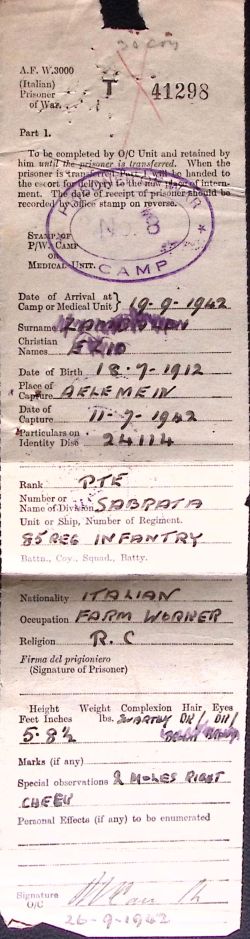 A.F. W.3000
(Italian)
Prisoner
of War.
T 41298
Part 1.
To be completed by O/C Unit and retained by
him until the prisoner is transferred. When the
prisoner is transferred Part 1 will be handed to
the escort for delivery to the new place of intern-
ment. The date of receipt of prisoner should be
recorded by office stamp on reverse.
Stamp of
P/W. Camp
or
Medical Unit.
CAMP
Date of Arrival at
Camp or Medical Unit} 19-9-1942
Surname
Christian
Names EZIO
Date of Birth 18-9-1912
Place of
Capture AELEMEIN
Date of
Capture 11-7-1942
Particulars on
Identity Disc 24114
Rank PTE
Number or
Name of Division SABRATA
Unit or Ship, Number of Regiment.
85 REG INFANTRY
Battn., Coy., Squad., Batty.
Nationality ITALIAN
Occupation FARM WORKER
Religion R.C
Firma del prigioniero
(Signature of Prisoner)
Height Weight Complexion Hair Eyes
Feet Inches lbs. SWARTHY DK/ DK/
5.8½ BROWN
Marks (if any)
Special observations 2 MOLES RIGHT
CHEEK
Personal Effects (if any) to be enumerated
Signature
O/C
26-9-1942